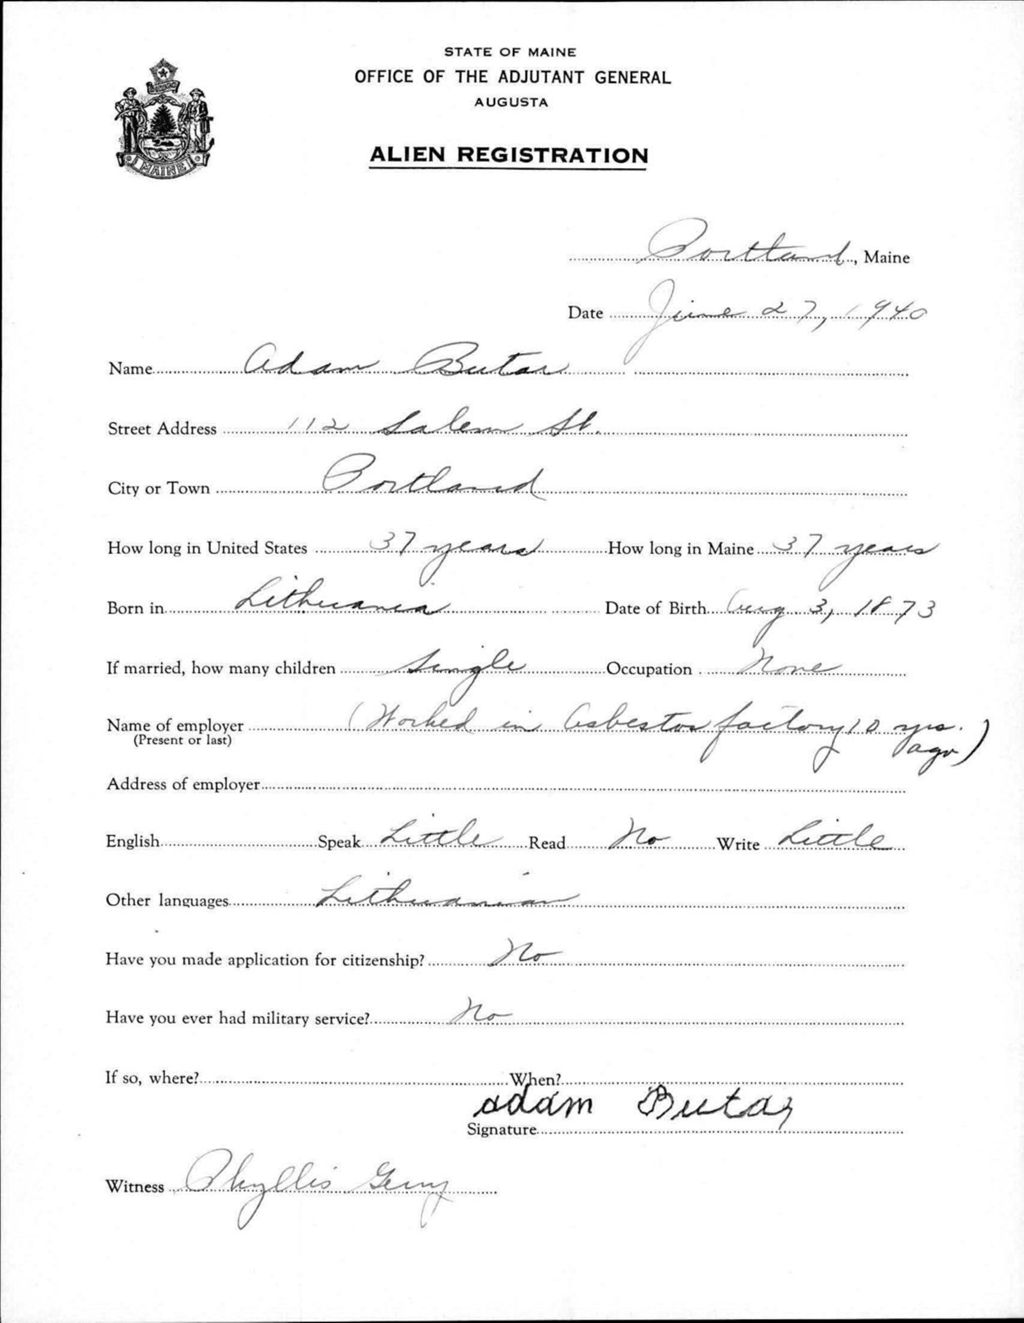 STATE OF MAINE
OFFICE OF THE ADJUTANT GENERAL
AUGUSTA
ALIEN REGISTRATION
MAINE
Portland, Maine
Date June 27, 1940
Name Adam Butar
Street Address 112 Salem St.
City or Town Portland
How long in United States 37 years How long in Maine 37 years
Born in Lithuania Date of Birth Aug 3, 1873
If married, how many children Single Occupation None
Name of employer (Worked in Asbestos factory 10 yrs. ago)
(Present or last)
Address of employer
English Speak Little Read No Write Little
Other languages Lithuanian
Have you made application for citizenship? No
Have you ever had military service? No
If so, where? When?
Signature adam Butar
Witness Phyllis